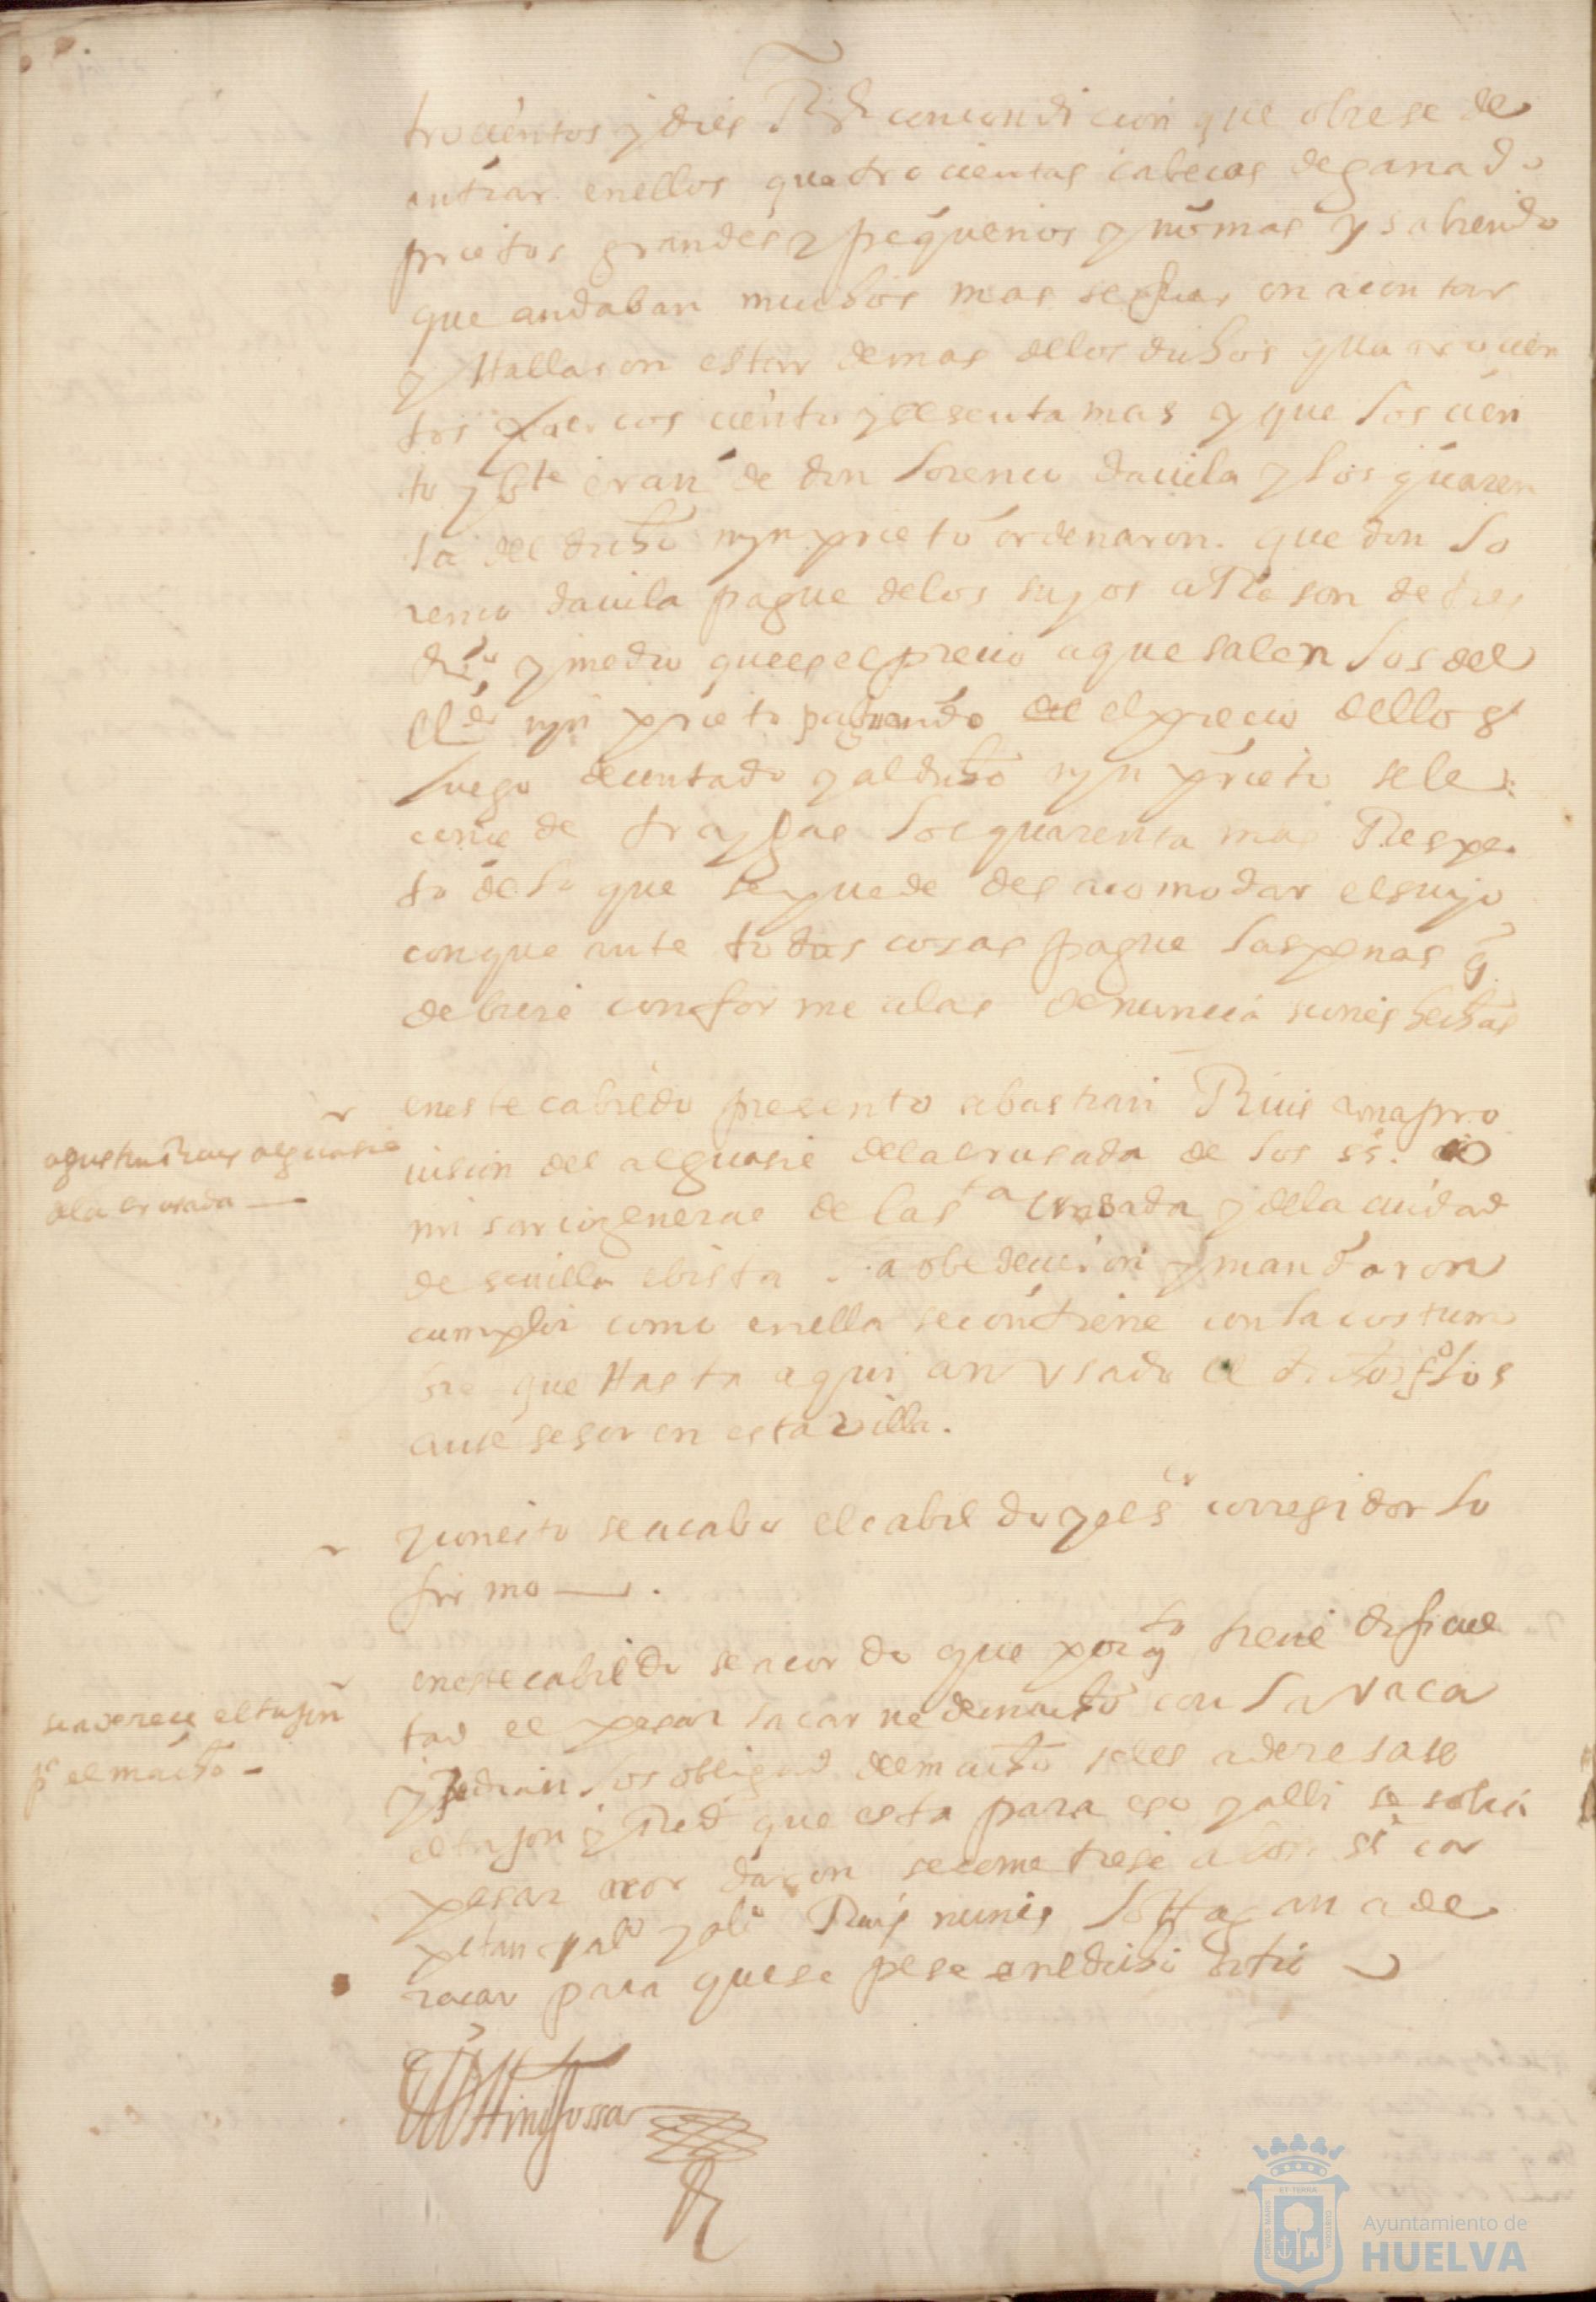 trocientos y dies Rs con condicion que obiese de
entrar enellos quatrocientas cabecas de ganado
prietos grandes y pequenos y no mas y sabiendo
que andaban muchos mas se fueron a contar
y Hallaron estar demas dellos dichos quatrocien
tos puercos ciento y sesenta mas y que los cien
to y bte eran de don lorenco dauila y los quaren
ta del dicho mjn prieto ordenaron que don lo
renco dauila pague delos suyos a Rason de tres
Rs y medio que es el precio a que salen los del
dho mjn prieto pagando el precio dellos
luego decontado y al dicho mjn prieto se le
concede traygas los quarenta mas Respe
to de lo que se puede des acomodar el suyo
con que ante todas cosas pague las penas q
debiere conforme alas denunciasiones hechas
eneste cabildo presento sebastian Ruis una pro
uision del alguasil dela crusada de los ss. co
misario general de la sta crusada y dela ciudad
de seuilla e bista la obedecieron y mandaron
cumplir como enella se contiene con la costum
bre que Hasta aqui an usado el dicho y los
antesesor en esta villa.
agustin Ruis alguasil
dela crusada
y conesto se acabo el cabildo y el sr corregidor lo
firmo
eneste cabildo se acordo que por qto tiene dificul
tad el pesar la carne de macho con la vaca
y pedian los obligados del macho seles aderesase
el tajon y Red que esta para eso y alli se solia
pesar acordaron se cometiese a
Ruis nunes lo Hagan ade
resar para que se pese enel dicho sitio
se aderece el tajon
pa el macho
Ayuntamiento de
HUELVA
PORTUS MARIS
ET TERRA
CUSTODIA